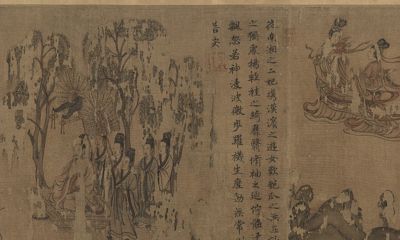 從南湘之二妃携漢濱之遊女歎匏瓜之無匹
之獨處揚輕袿之綺靡翳脩袖以延佇
飄忽若神凌波微步羅襪生塵動無常